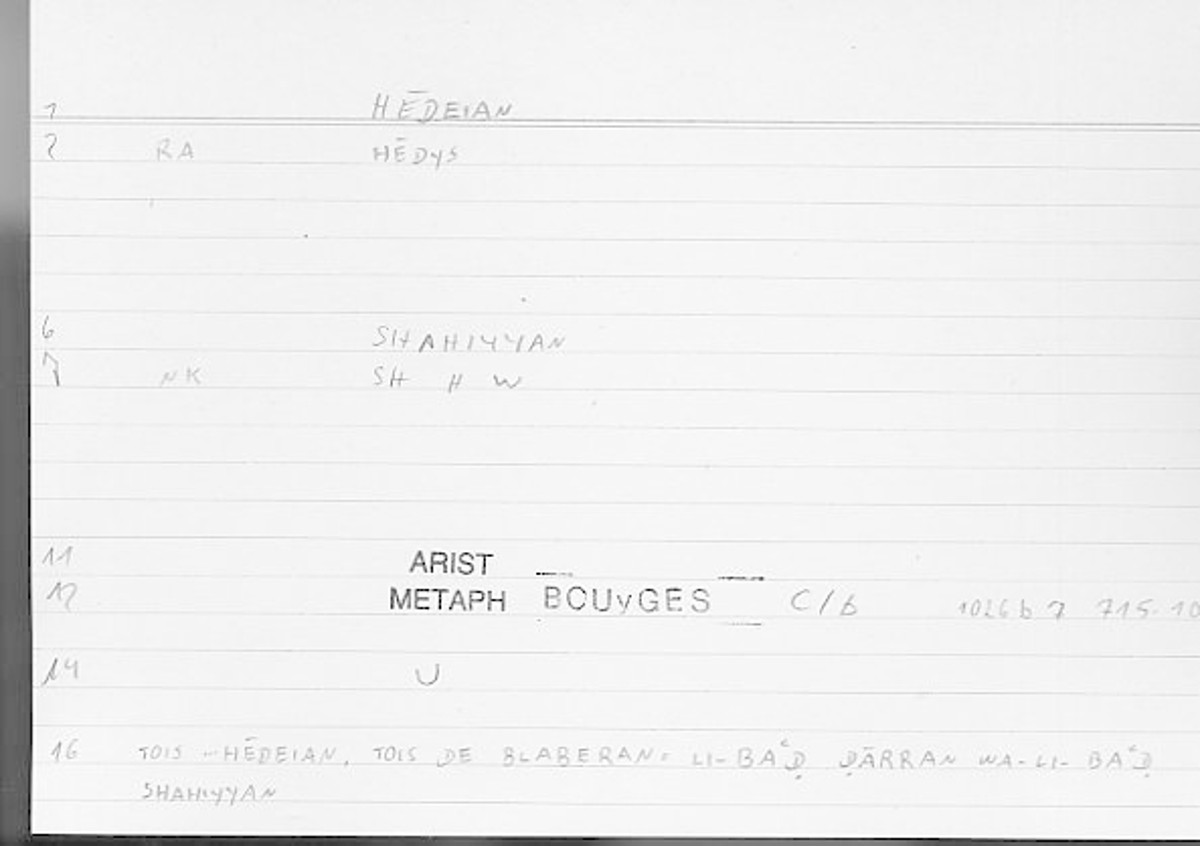 1 HĒDEIAN
2 RA HĒDYS
6 SHAHIYYAN
7 NK SH H W
11 ARIST
12 METAPH BOUyGES C/b 1026 b 7 715.10
14 U
16 TOIS -HĒDEIAN, TOIS DE BLABERAN: LI-BAʿḌ ḌĀRRAN WA-LI-BAʿḌ
SHAHIYYAN